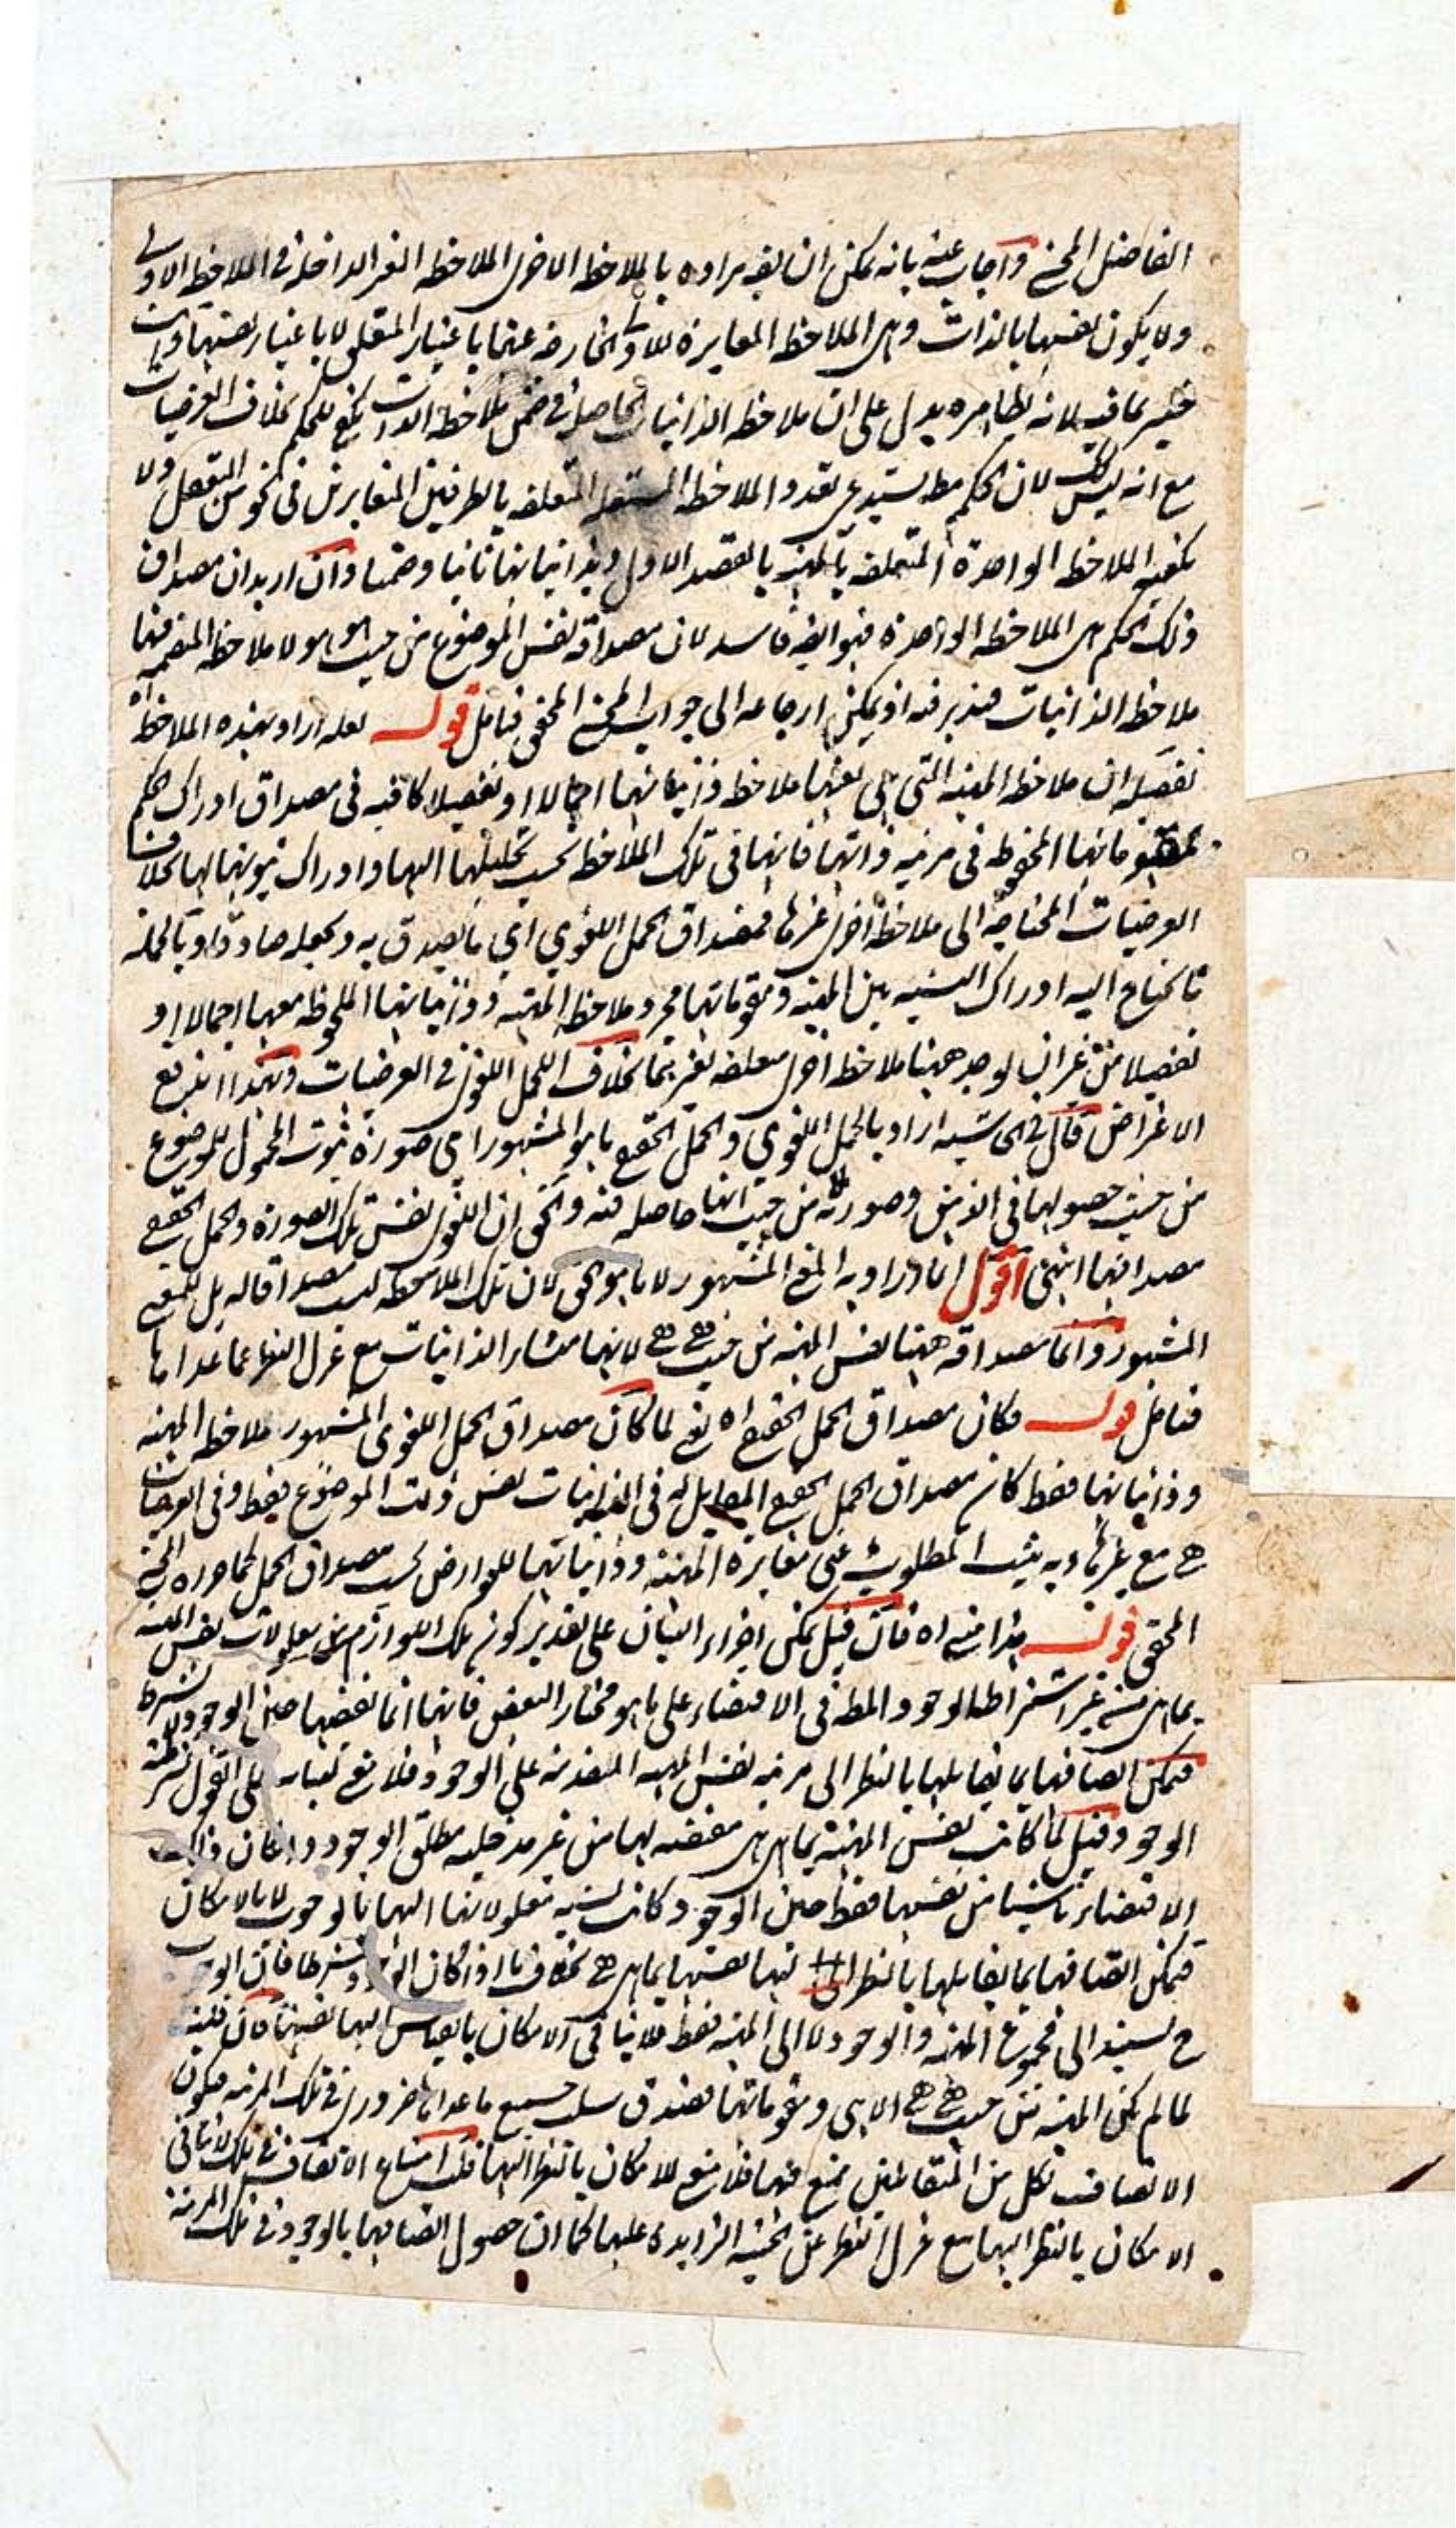 الفاضل المحشي وآجاب عنه بانه يمكن ان يقه مراده بالملاحظه الاخرى الملاحظه الغير الداخلة في الملاحظه الاولى
ولا يكون نفسها بالذات وهى الملاحظه المغايرة للاولى الخارجه عنها باعتبار المتعلق لا باعتبار نفسها وانت
خبير بما فيه لانه بظاهره يدل على ان ملاحظه الذاتيات الحاصلة في ضمن ملاحظة الذات يكفي للحكم بخلاف العرضيات
مع انه ليس كك لان الحكم مطه يستدعى تعدد الملاحظه المستقله المتعلقه بالطرفين المتغايرين في نحو من التعقل ولا
يكفيه الملاحظه الواحدة المتعلقه بالمهيه بالقصد الاول وبذاتياتها ثانيا وضمنا وآن اريد ان مصداق
ذلك الحكم هى الملاحظه الواحدة فهو ايضه فاسد لان مصداقه نفس الموضوع من حيث هو هو لا ملاحظه المنضمه فيها
ملاحظه الذاتيات فتدبر فيه اذ يمكن ارجاعه الى جواب المحشي المحقق فتامل قولــه لعله اراد بهذه الملاحظه اه
تفصيله ان ملاحظه المهيه التى هى بعينها ملاحظه ذاتياتها اجمالا او تفصيلا كافيه في مصداق ادراك حكم
بمقوماتها المحفوظه في مرتبه ذاتها فانها في تلك الملاحظه يجب تحليلها اليها وادراك ثبوتها لها بخلاف
العرضيات المحتاجه الى ملاحظة اخرى غيرها فمصداق الحمل اللغوي اي ما يصدق به ويجعله صادقا وبالجمله
ما يحتاج اليه ادراك النسبه بين المهيه ومقوماتها مجرد ملاحظه المهيه وذاتياتها الملحوظه معها اجمالا او
تفصيلا من غير ان يوجد ههنا ملاحظه اخرى متعلقه بغيرها بخلاف الحمل اللغوى في العرضيات وبهذا اندفع
الاعتراض قال في الحاشيه اراد بالحمل اللغوي والحمل الحقيقي ما هو المشهور اي صورة ثبوت المحمول للموضوع
من حيث حصولها في الذهن وصورته من حيث انها حاصله فيه والحق ان اللغوى نفس تلك الصورة والحمل الحقيقي
مصداقها انتهى اقول انما اراد به المعنى المشهور لا ما هو الحق لان تلك الملاحظه ليست مصداقا له بل للمعنى
المشهور وآنما مصداقه ههنا نفس المهيه من حيث هى هى لانها منشا الذاتيات مع عزل النظر عما عداها
فتامل قولــه فكان مصداق الحمل الحقيقي اه يعنى لما كان مصداق الحمل اللغوى المشهور ملاحظه المهيه
وذاتياتها فقط كان مصداق الحمل الحقيقي المقابل له في الذاتيات نفس ذات الموضوع فقط وفي العرضيات
هى مع غيرها وبه يثبت المطلوب اعنى مغايرة المهيه وذاتياتها للعوارض بحسب مصداق الحمل كما حرره المحشي
المحقق قولــه هذا مبنى اه فان قيل يمكن اجراء البيان على تقدير كون تلك اللوازم من معلولات نفس المهيه
بما هى هى من غير اشتراط الوجود المطه في الاقتضاء على ما هو مختار البعض فانها انما تقتضيها حين الوجود لا بشرط
فيمكن اتصافها بما يقابلها بالنظر الى مرتبه نفس المهيه المتقدمه على الوجود فلا يقع لبنائه على القول بشرطيه
الوجود وقيل لما كانت نفس المهيه بما هى هى مقتضيه لها من غير مدخليه مطلق الوجود وان كان ذلك
الاقتضاء ناشيا من نفسها فقط حين الوجود كانت نسبه معلولاتها اليها بالوجوب لا بالامكان
فيمكن اتصافها بما يقابلها بالنظر الى نفسها بما هى هى بخلاف ما اذا كان الوجود شرطا فان الوجوب
ح يستند الى مجموع المهيه والوجود لا الى المهيه فقط فلا ينافى الامكان بالقياس اليها نفسها فان قلت
لما لم يكن المهيه من حيث هى هى الا هى ومقوماتها فصدق سلب جميع ما عداها ضرورى في تلك المرتبه فيكون
الاتصاف بكل من المتقابلين يمتنع فيها فلا معنى للامكان بالنظر اليها قلت امتناع الاتصاف في تلك لا ينافى
الامكان بالنظر اليها مع عزل النظر عن الحيثيه الزايده عليها كما ان حصول اتصافها بالوجود في تلك المرتبه